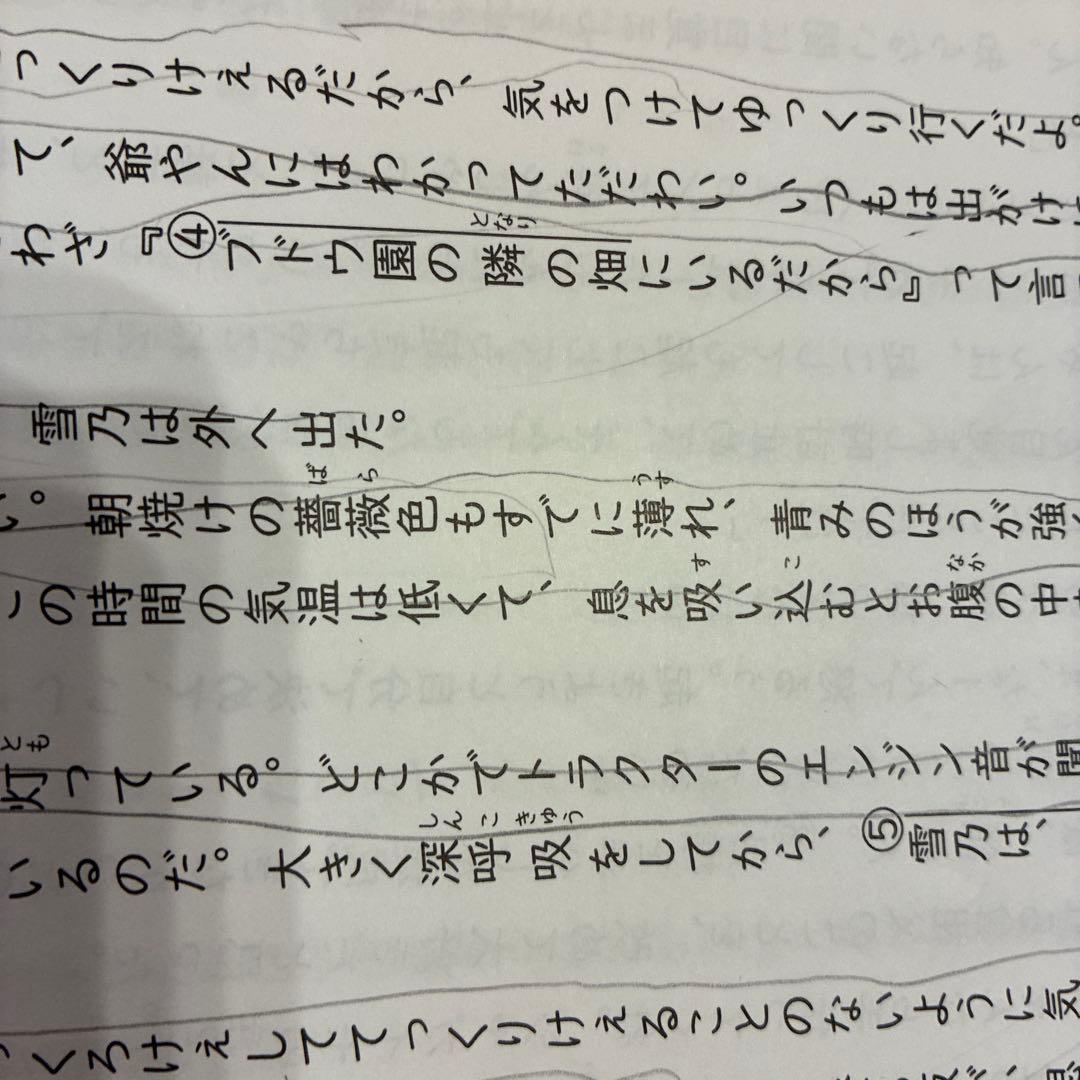 っくりけえるだから、気をつけてゆっくり行くだよ。
て、爺やんにはわかってただわい。いつもは出がけに
となり
わざ『④ブドウ園の隣の畑にいるだから』って言
雪乃は外へ出た。
ばら うす
い。朝焼けの薔薇色もすでに薄れ、青みのほうが強
す こ なか
この時間の気温は低くて、息を吸い込むとお腹の中
とも
灯っている。どこかでトラクターのエンジン音が聞
しんこきゅう
いるのだ。大きく深呼吸をしてから、⑤雪乃は、
くろけえしててっくりけえることのないように気